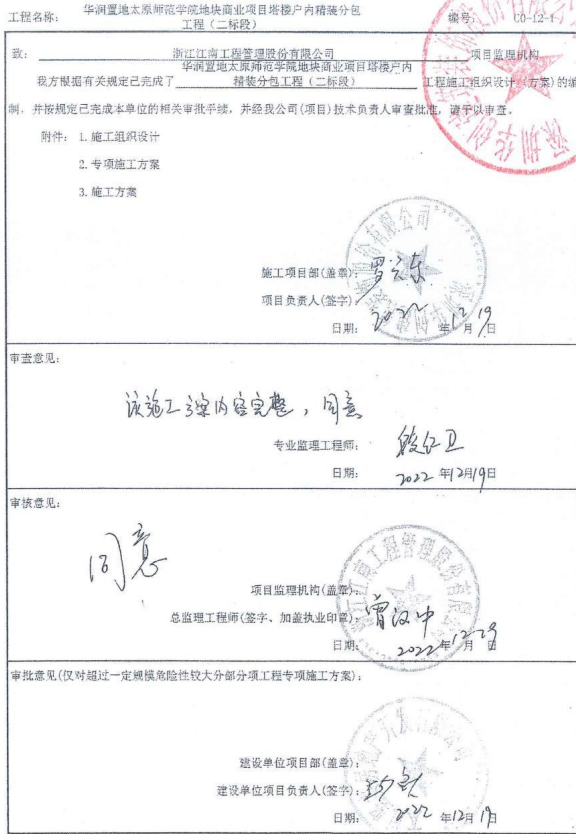 工程名称: 华润置地太原师范学院地块商业项目塔楼户内精装分包
工程（二标段）
编号: C0-12-1
致: 浙江江南工程管理股份有限公司 项目监理机构
华润置地太原师范学院地块商业项目塔楼户内
我方根据有关规定已完成了 精装分包工程（二标段） 工程施工组织设计(方案)的编
制，并按规定已完成本单位的相关审批手续，并经我公司(项目)技术负责人审查批准，请予以审查。
附件: 1.施工组织设计
2.专项施工方案
3.施工方案
施工项目部(盖章):
项目负责人(签字)
日期: 2022 年12月19
审查意见:
该施工方案内容完整，同意
专业监理工程师:
日期: 2022 年12月19日
审核意见:
同意
项目监理机构(盖章):
总监理工程师(签字、加盖执业印章): 曾汉中
日期: 2022年12月29日
浙江江南工程管理股份有限公司
审批意见(仅对超过一定规模危险性较大分部分项工程专项施工方案):
建设单位项目部(盖章):
建设单位项目负责人(签字):
日期: 2022 年12月19日